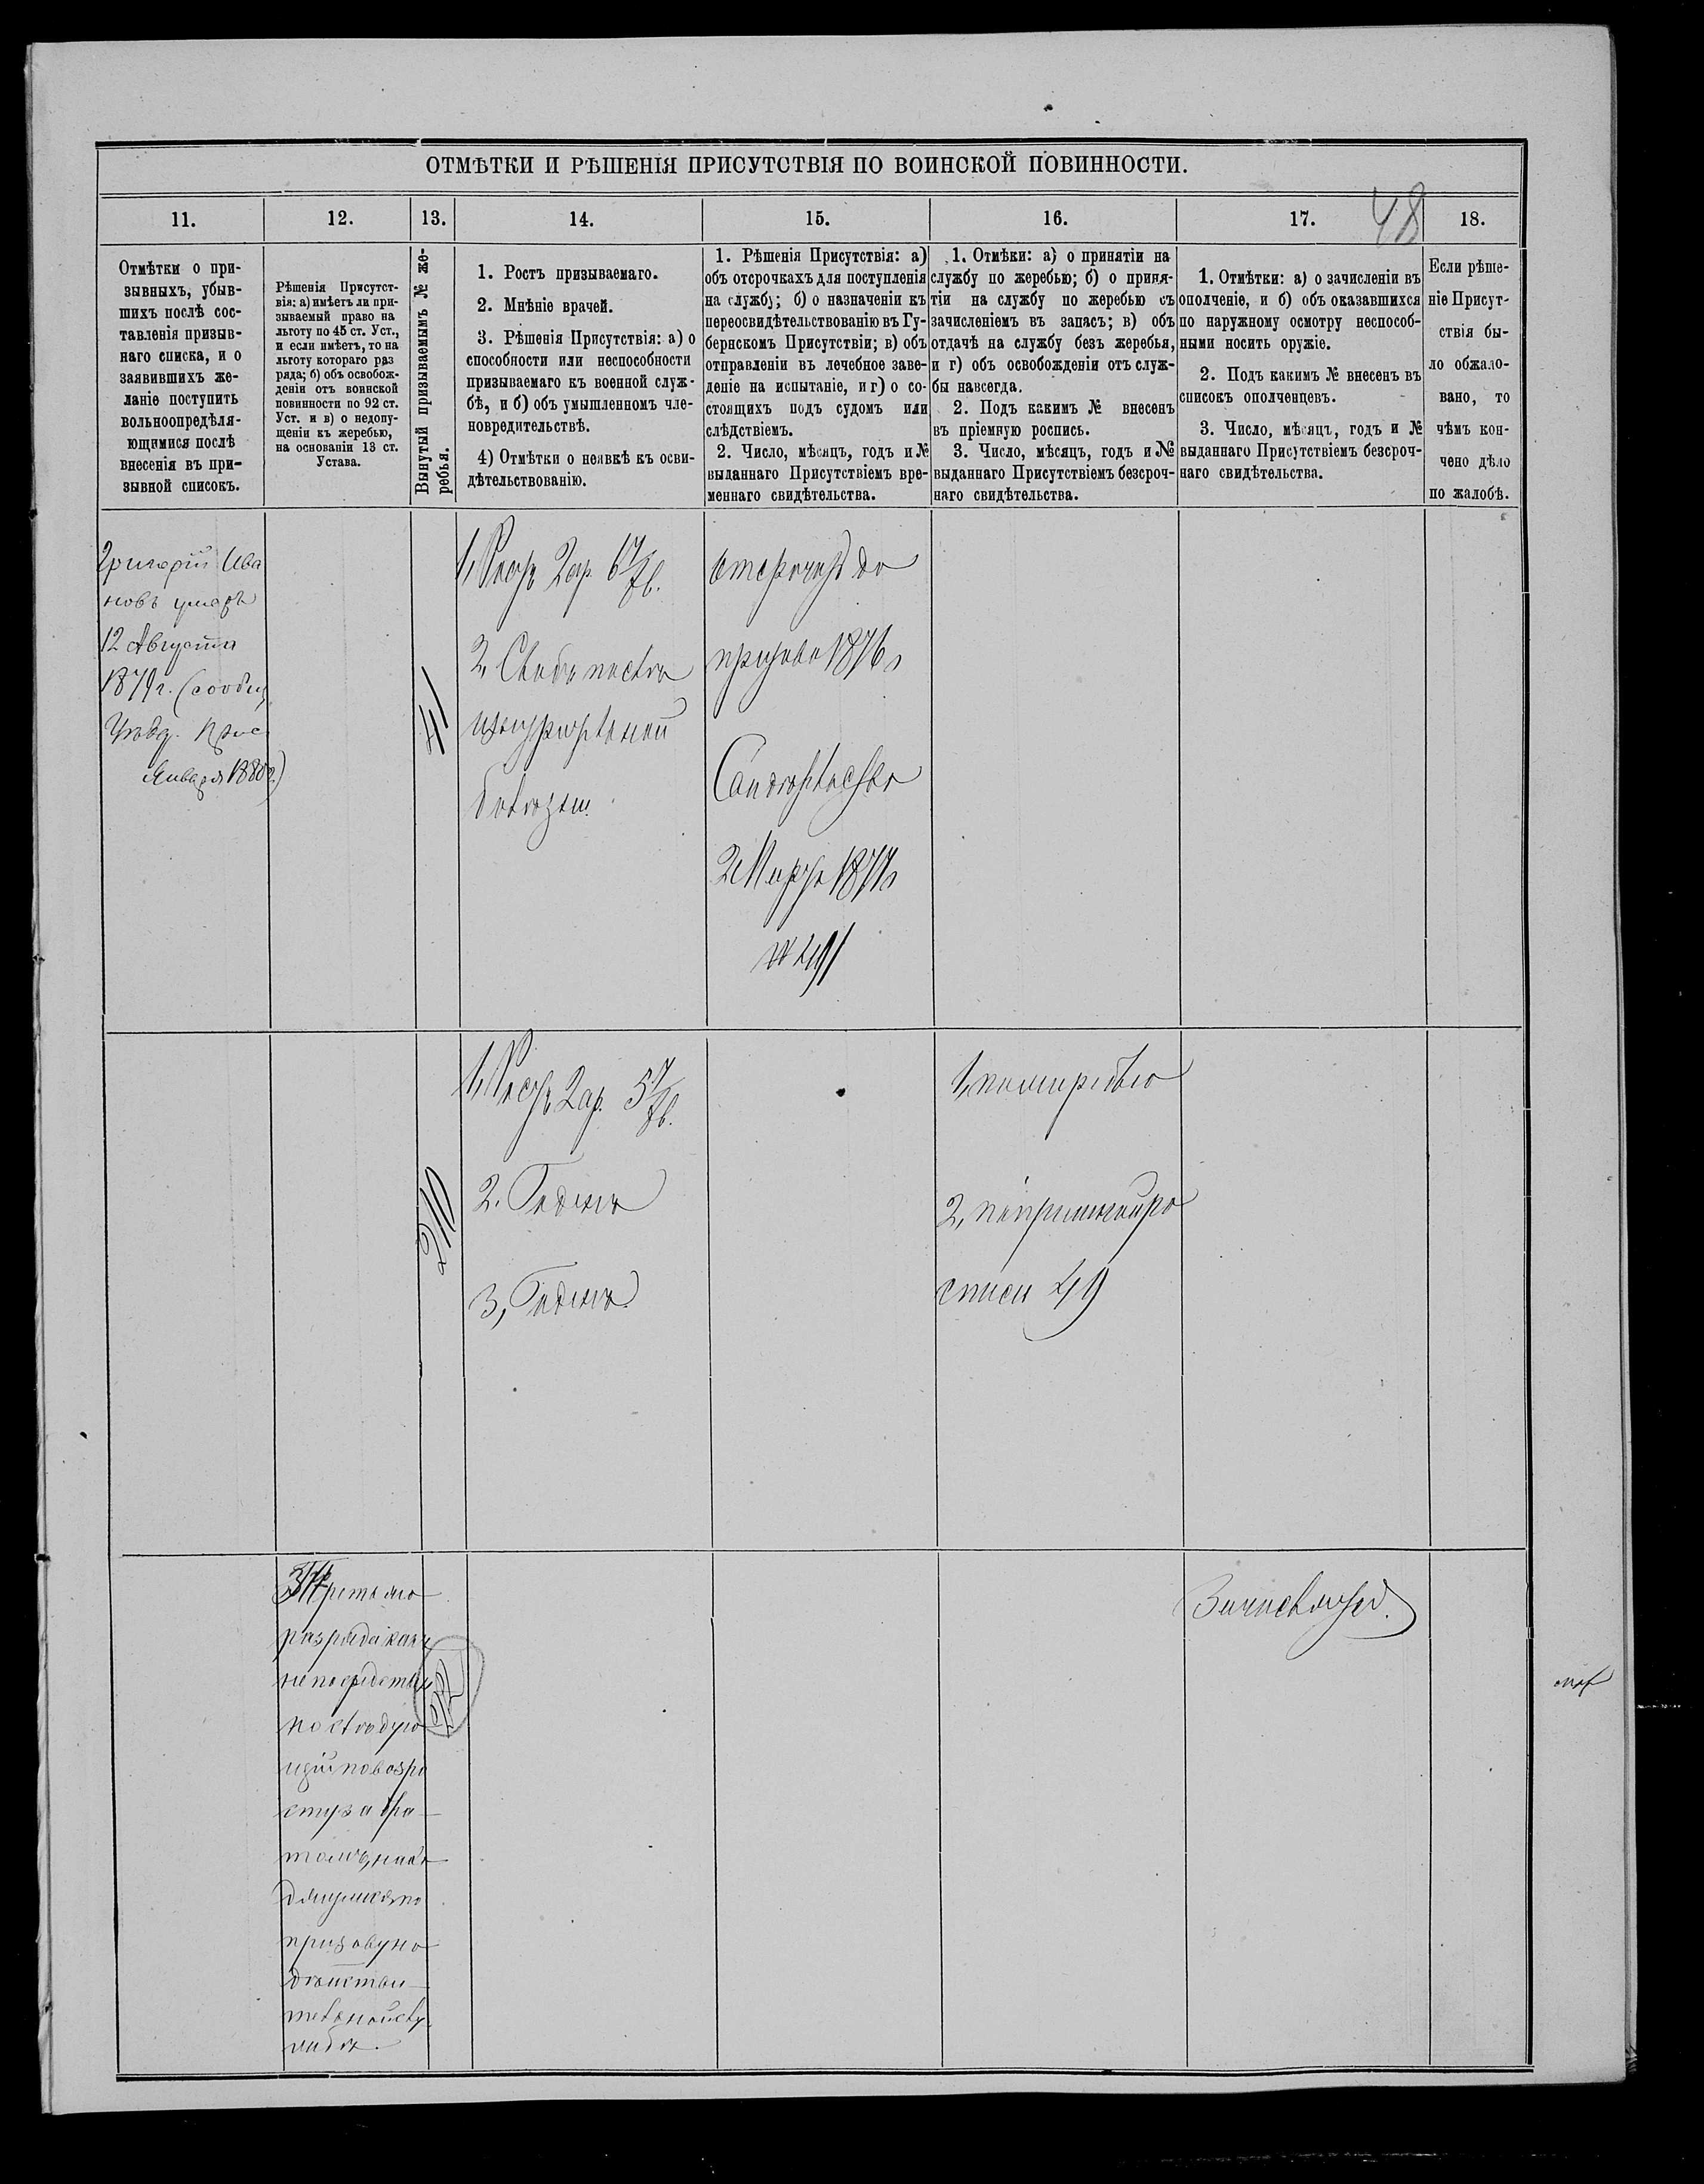 ОТМѢТКИ И РѢШЕНІЯ ПРИСУТСТВІЯ ПО ВОИНСКОЙ ПОВИННОСТИ.
48
11.
12.
13.
14.
15.
16.
17.
18.
Отмѣтки о при-
зывныхъ, убыв-
шихъ послѣ сос-
тавленія призыв-
наго списка, и о
заявившихъ же-
ланіе поступить
вольноопредѣля-
ющимися послѣ
внесенія въ при-
зывной списокъ.
Рѣшенія Присутст-
вія: а) имѣетъ ли при-
зываемый право на
льготу по 45 ст. Уст.,
и если имѣетъ, то на
льготу котораго раз
ряда; б) объ освобож-
деніи отъ воинской
повинности по 92 ст.
Уст. и в) о недопу-
щеніи къ жеребью,
на основаніи 13 ст.
Устава.
Вынутый призываемымъ № же-
ребья.
1. Ростъ призываемаго.
2. Мнѣніе врачей.
3. Рѣшенія Присутствія: а) о
способности или неспособности
призываемаго къ военной служ-
бѣ, и б) объ умышленномъ чле-
новредительствѣ.
4) Отмѣтки о неявкѣ къ осви-
дѣтельствованію.
1. Рѣшенія Присутствія: а)
объ отсрочкахъ для поступленія
на службу; б) о назначеніи къ
переосвидѣтельствованію въ Гу-
бернскомъ Присутствіи; в) объ
отправленіи въ лечебное заве-
деніе на испытаніе, и г) о со-
стоящихъ подъ судомъ или
слѣдствіемъ.
2. Число, мѣсяцъ, годъ и №
выданнаго Присутствіемъ вре-
меннаго свидѣтельства.
1. Отмѣки: а) о принятіи на
службу по жеребью; б) о приня-
тіи на службу по жеребью съ
зачисленіемъ въ запасъ; в) объ
отдачѣ на службу безъ жеребья,
и г) объ освобожденіи отъ служ-
бы навсегда.
2. Подъ какимъ № внесенъ
въ пріемную роспись.
3. Число, мѣсяцъ, годъ и №
выданнаго Присутствіемъ безсроч-
наго свидѣтельства.
1. Отмѣтки: а) о зачисленіи въ
ополченіе, и б) объ оказавшихся
по наружному осмотру неспособ-
ными носить оружіе.
2. Подъ какимъ № внесенъ въ
списокъ ополченцевъ.
3. Число, мѣсяцъ, годъ и №
выданнаго Присутствіемъ безсроч-
наго свидѣтельства.
Если рѣше-
ніе Присут-
ствія бы-
ло обжало-
вано, то
чѣмъ кон-
чено дѣло
по жалобѣ.
Григорій Ива
новъ умеръ
12 Августа
1879 г. (сообщ
Уѣзд. Прис
Января 1880 г.)
41
1, Ростъ 2 ар. 6 7/8 в.
2, Слабъ послѣ
болѣзни.
отсрочка до
призыва 1876 г
2 Марта 1877 г
№ 491
210
1, Ростъ 2 ар. 5 7/8 в.
2. Годенъ
3, Годенъ
1, по жеребью
2, по пріемной ро
списи 49
Третьяго
разряда какъ
непосредствен
но слѣдую
щій по возра
сту за бра
томъ, нахо
дящимся по
призыву на
дѣйстви
тельной слу
жбѣ.
Зачисляется.